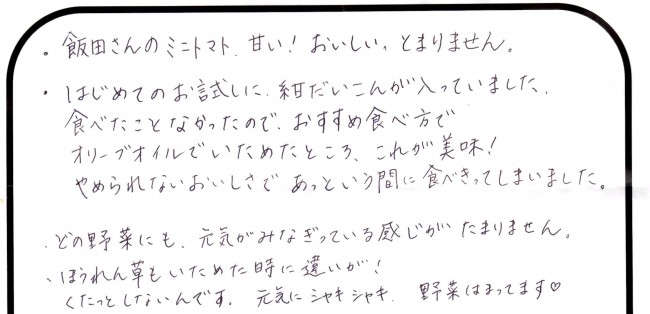 。飯田さんのミニトマト、甘い！おいしい、とまりません。
・はじめてのお試しに、紺だいこんが入っていました、
食べたことなかったので、おすすめ食べ方で
オリーブオイルでいためたところ、これが美味！
やめられないおいしさであっという間に食べきってしまいました。
、どの野菜にも、元気がみなぎっている感じがたまりません。
、ほうれん草もいためた時に違いが！
くたっとしないんです。元気にシャキシャキ、野菜はまってます♡